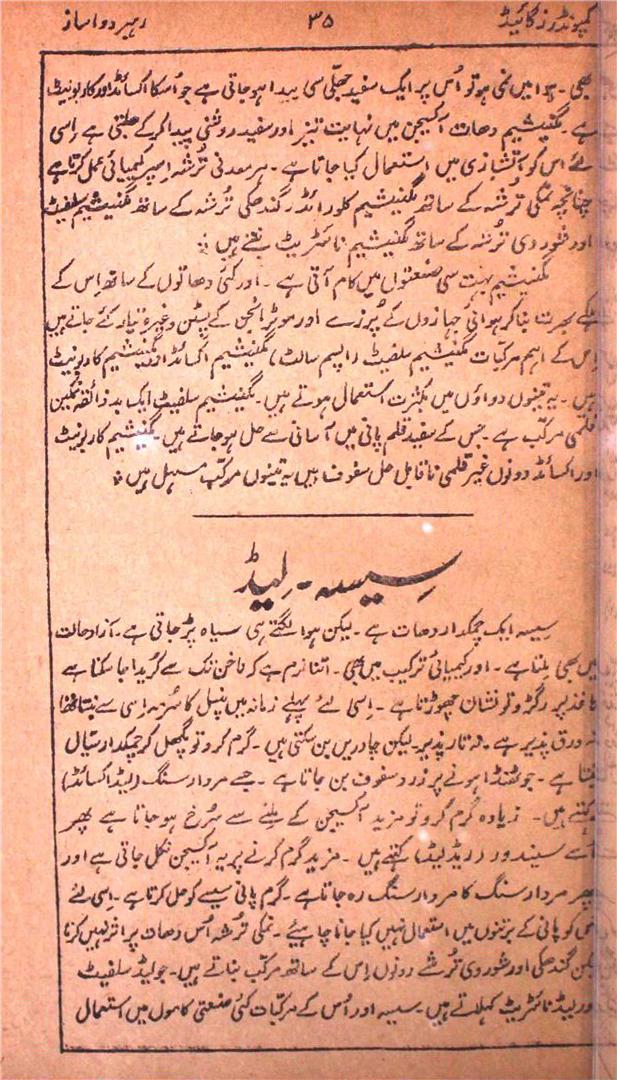 کمپونڈرز گائیڈ ۳۵ رہبر دوا ساز
بھی۔ ہوا میں نمی ہو تو اُس پر ایک سفید جھلّی سی پیدا ہو جاتی ہے جو اُسکا اکسائڈ اور کاربونیٹ
ہے۔ مگنیشیم دھات آکسیجن میں نہایت تیز اور سفید روشنی پیدا کر کے جلتی ہے اِسی
لئے اس کو آتشبازی میں استعمال کیا جاتا ہے۔ ہر معدنی تُرشہ اِسپر کیمیائی عمل کرتا ہے
چنانچہ نمکی تُرشہ کے ساتھ مگنیشیم کلورائڈ۔ گندھکی تُرشہ کے ساتھ مگنیشیم سلفیٹ
اور شوردی تُرشہ کے ساتھ مگنیشیم نائٹریٹ بنتے ہیں
مگنیشیم بہت سی صنعتوں میں کام آتی ہے۔ اور کئی دھاتوں کے ساتھ اِس کے
ہلکے بھرت بنا کر ہوائی جہازوں کے پُرزے اور موٹر انجن کے پسٹن وغیرہ تیار کئے جاتے ہیں
اِس کے اہم مرکبات مگنیشیم سلفیٹ (اپسم سالٹ) مگنیشیم اکسائڈ اور مگنیشیم کاربونیٹ
ہیں۔ یہ تینوں دواؤں میں بکثرت استعمال ہوتے ہیں۔ مگنیشیم سلفیٹ ایک بد ذائقہ نمکین
قلمی مرکب ہے۔ جس کے سفید قلم پانی میں آسانی سے حل ہو جاتے ہیں۔ مگنیشیم کاربونیٹ
اور اکسائڈ دونوں غیر قلمی ناقابل حل سفوف ہیں یہ تینوں مرکب مسہل ہیں
سیسہ۔ لیڈ
سیسہ ایک چمکدار دھات ہے۔ لیکن ہوا لگتے ہی سیاہ پڑ جاتی ہے۔ آزاد حالت
میں بھی ملتا ہے۔ اور کیمیائی ترکیب میں بھی۔ اتنا نرم ہے کہ ناخن تک سے کُریدا جا سکتا ہے
کاغذ پر رگڑو تو نشان چھوڑتا ہے۔ اِسی لئے پہلے زمانہ میں پنسل کا سُرمہ اِسی سے بنتا تھا
نہ ورق پذیر ہے۔ نہ تار پذیر۔ لیکن چادریں بن سکتی ہیں۔ گرم کرو تو پگھل کر چمکدار سیال
بنتا ہے۔ جو ٹھنڈا ہونے پر زرد سفوف بن جاتا ہے۔ جسے مردار سنگ (لیڈ اکسائڈ)
کہتے ہیں۔ زیادہ گرم کرو تو مزید آکسیجن کے ملنے سے سُرخ ہو جاتا ہے پھر
اُسے سیندور (ریڈ لیڈ) کہتے ہیں۔ مزید گرم کرنے پر یہ آکسیجن نکل جاتی ہے اور
پھر مردار سنگ کا مردار سنگ رہ جاتا ہے۔ گرم پانی سیسے کو حل کرتا ہے۔ اِسی لئے
اس کو پانی کے برتنوں میں استعمال نہیں کیا جانا چاہیئے۔ نمکی تُرشہ اُس دھات پر اثر نہیں کرتا
لیکن گندھکی اور شوردی تُرشے دونوں اِس کے ساتھ مرکب بناتے ہیں۔ جو لیڈ سلفیٹ
اور لیڈ نائٹریٹ کہلاتے ہیں۔ سیسہ اور اُس کے مرکبات کئی صنعتی کاموں میں استعمال